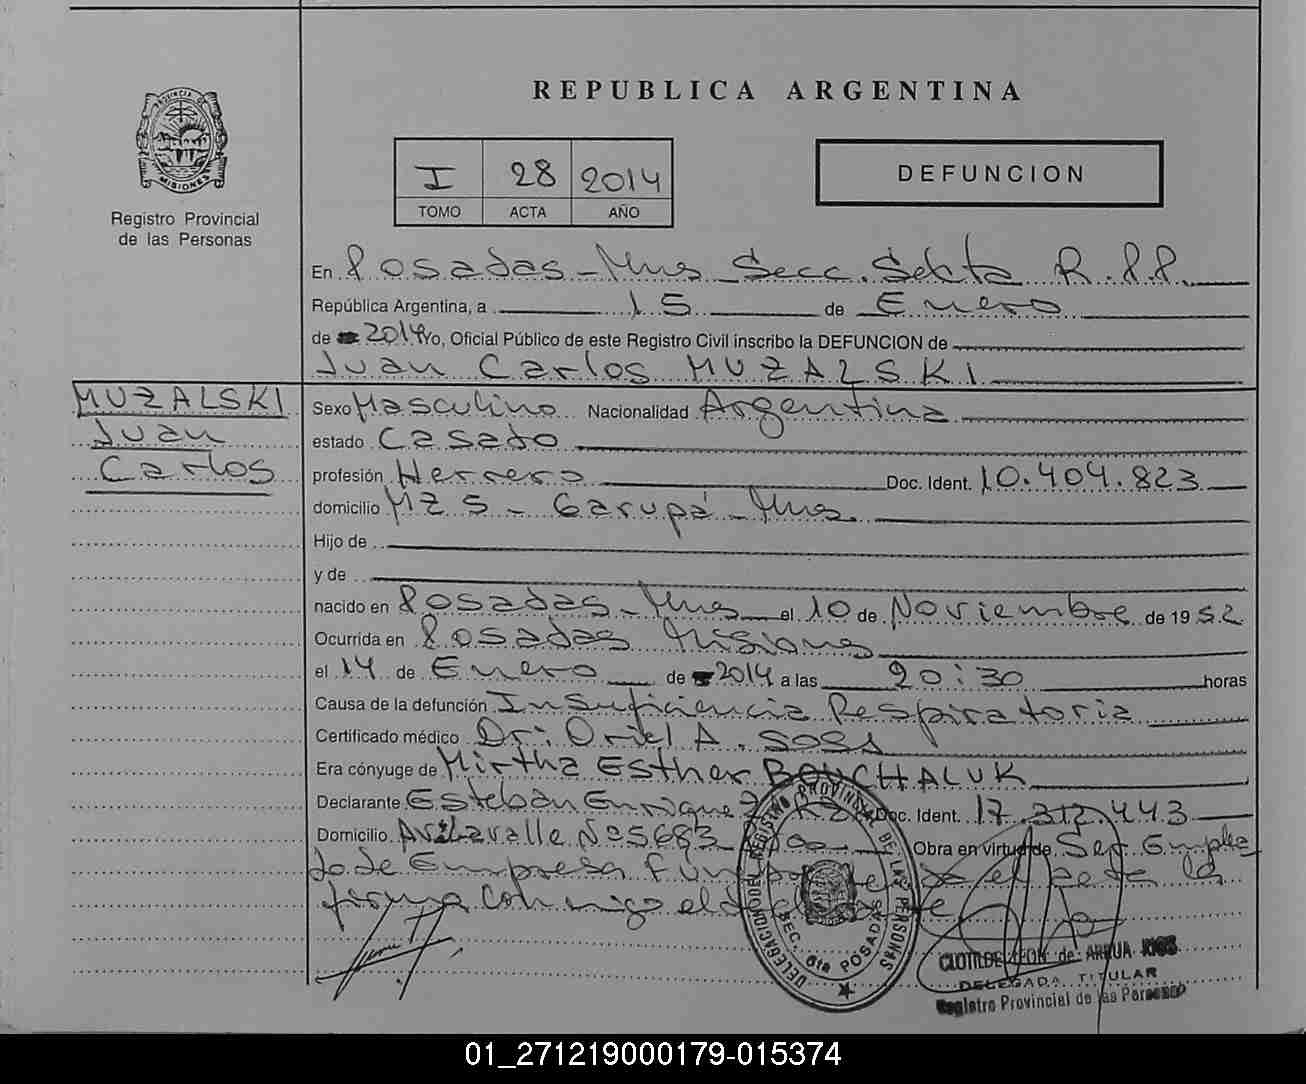 REPUBLICA ARGENTINA
PROVINCIA DE
MISIONES
Registro Provincial
de las Personas
I 28 2014
TOMO ACTA AÑO
DEFUNCION
En Posadas - Mnes Secc. Sexta R.P.P.
República Argentina, a 15 de Enero
de 2014 Yo, Oficial Público de este Registro Civil inscribo la DEFUNCION de
Juan Carlos MUZALSKI
MUZALSKI
Juan
Carlos
Sexo Masculino Nacionalidad Argentina
estado Casado
profesión Herrero Doc. Ident. 10.404.823
domicilio MZ 5 - Garupá - Mnes.
Hijo de
y de
nacido en Posadas - Mnes el 10 de Noviembre de 1952
Ocurrida en Posadas Misiones
el 14 de Enero de 2014 a las 20:30 horas
Causa de la defunción Insuficiencia Respiratoria
Certificado médico Dr: Oriel A. SOSA
Era cónyuge de Mirtha Esther BOUCHALUK
Declarante Esteban Enrique Doc. Ident. 17.312.443
Domicilio Av. Lavalle Nº 5683 Obra en virtud de Ser Emplea
do de Empresa
firma conmigo el
DELEGACION DEL REGISTRO PROVINCIAL DE LAS PERSONAS
SEC. 6ta POSADAS
CLOTILDE LEON de ARRUA RIOS
DELEGADA TITULAR
Registro Provincial de las Personas
01_271219000179-015374